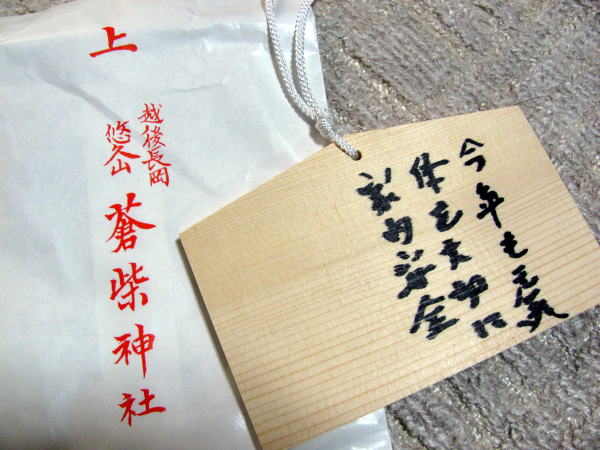 上
越後長岡
悠久山
蒼柴神社
今年も元気
体を大事に
家内安全